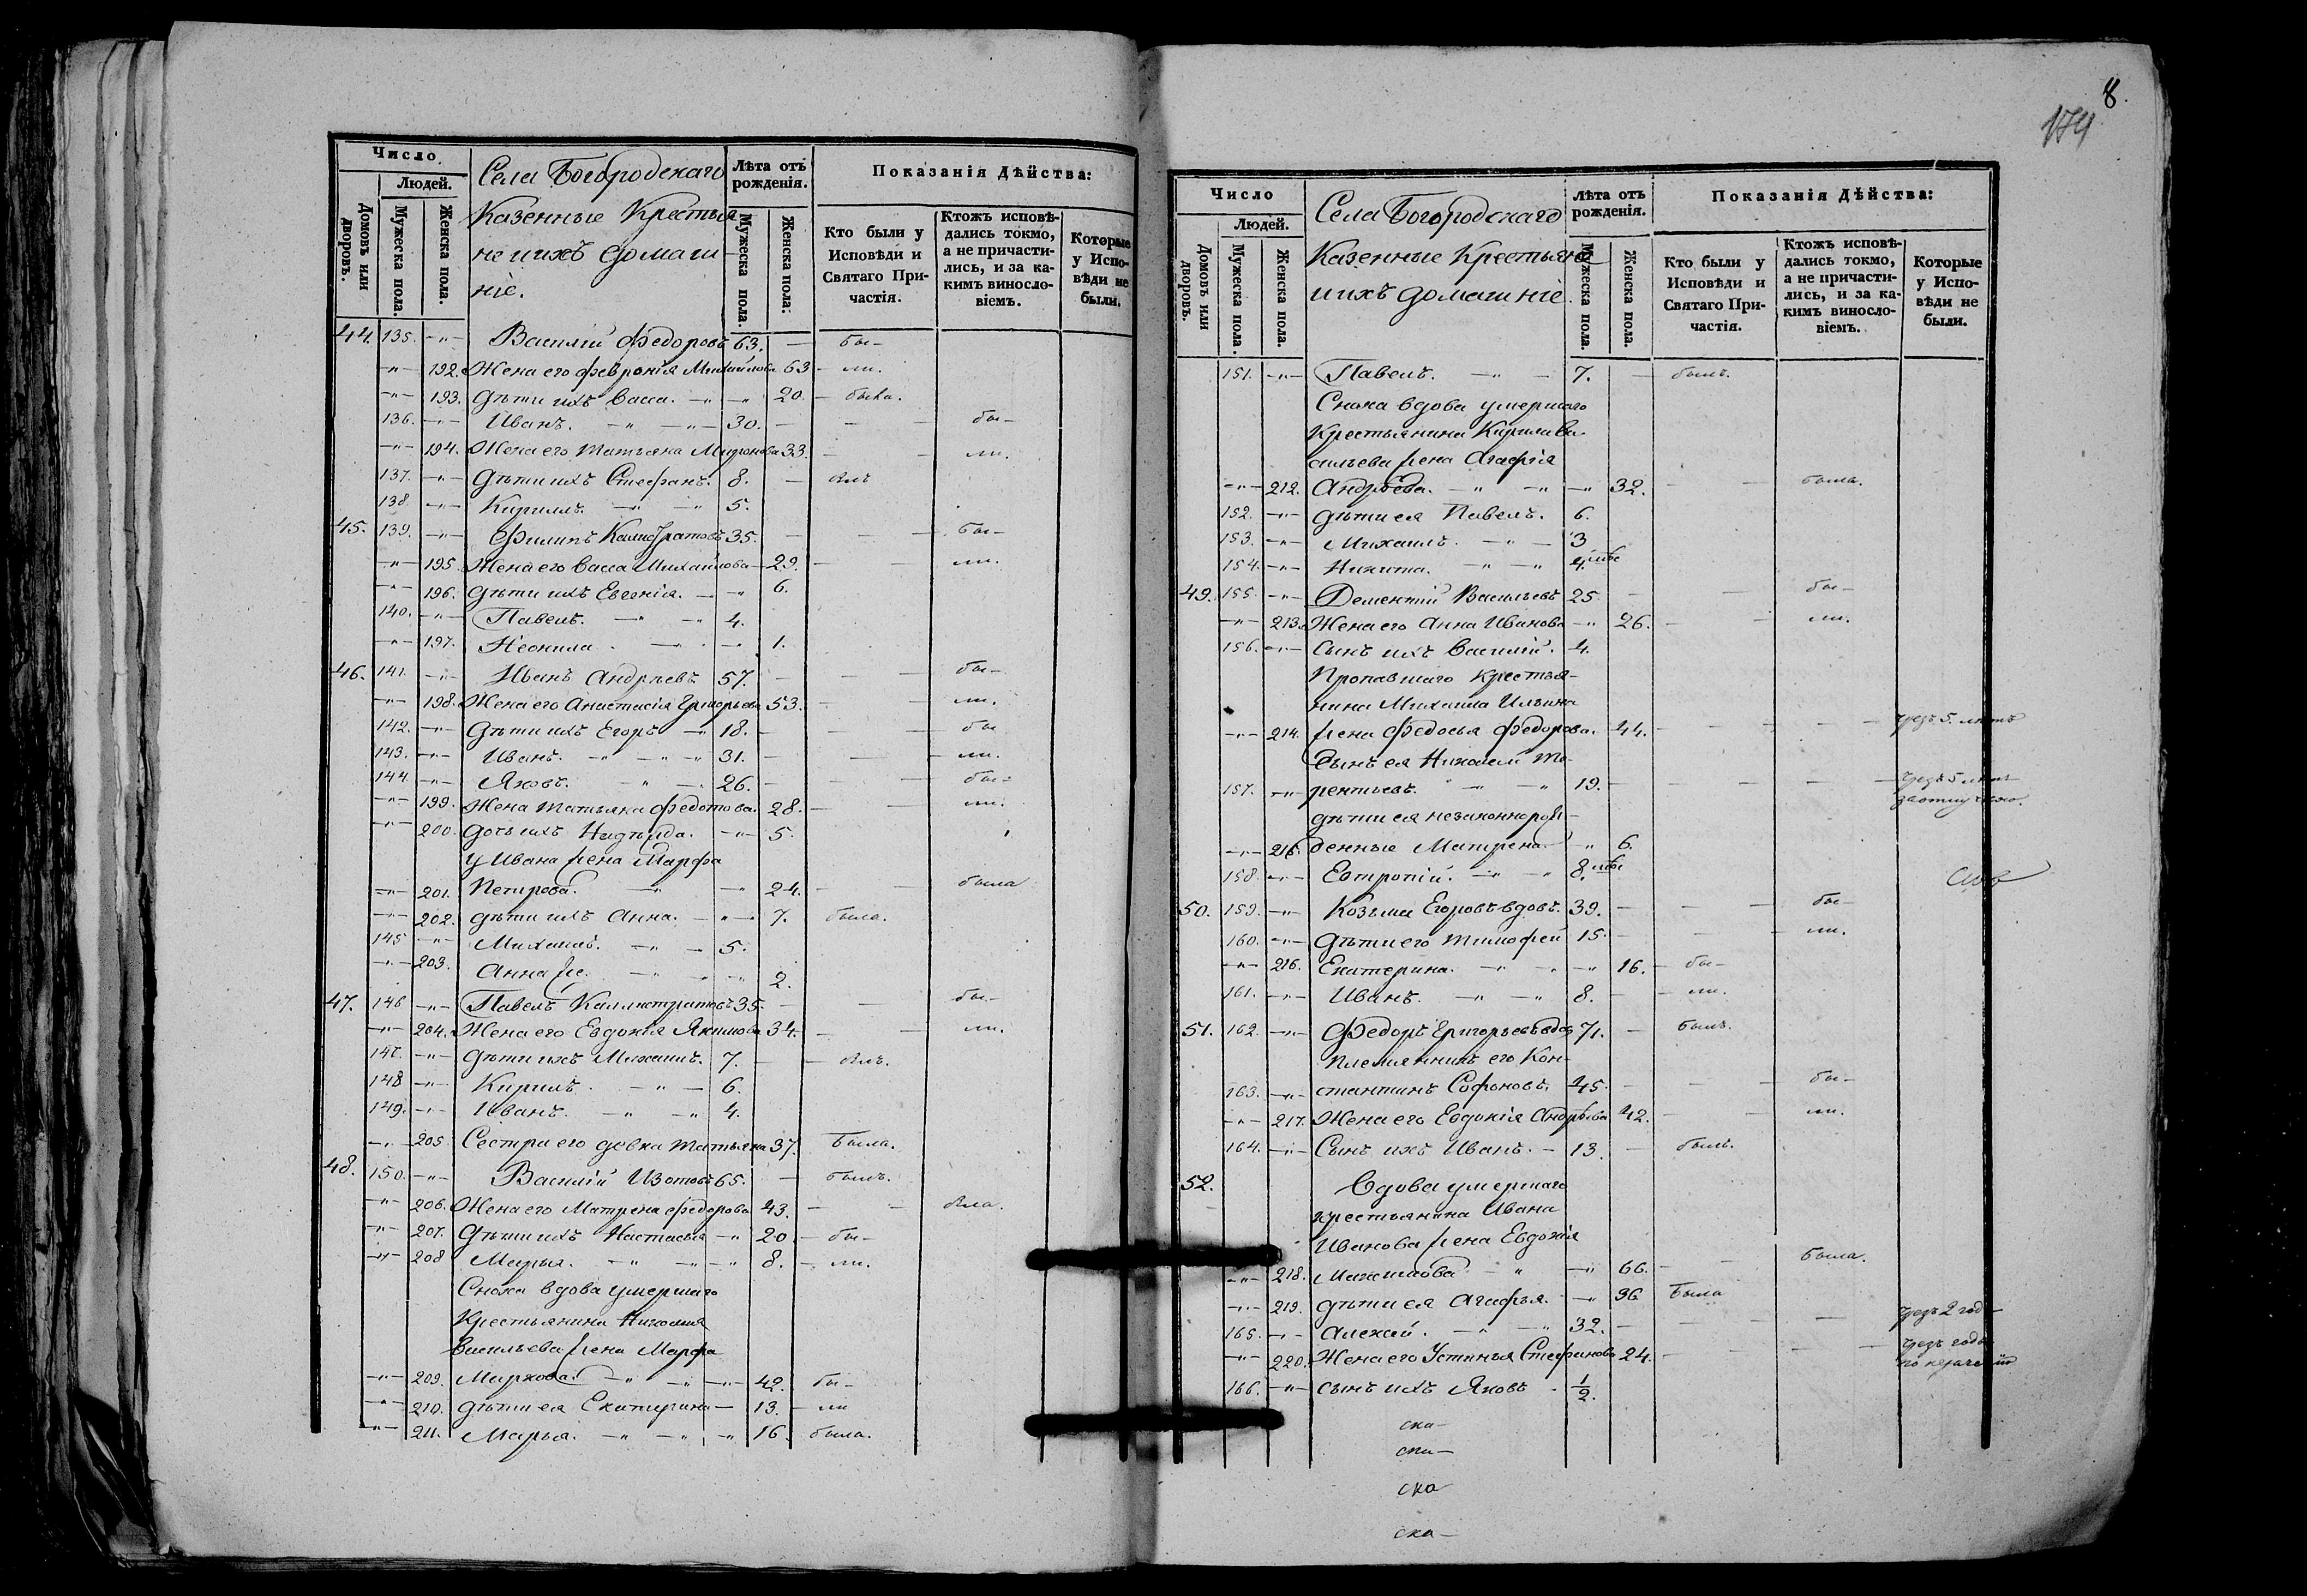 8.
174
Число
Людей.
Домовъ или дворовъ.
Мужеска пола.
Женска пола.
Села Богородскаго
Казенные Крестья
не ихъ домаш
ніе.
Лѣта отъ рожденія.
Мужеска пола.
Женска пола.
Показанія Дѣйства:
Кто были у Исповѣди и Святаго При-
частія.
Ктожъ исповѣ-
дались токмо,
а не причасти-
лись, и за ка-
кимъ винosло-
віемъ.
Которые
у Испо-
вѣди не
были.
44. 135. -"- Василій Федоровъ 63. — бы-
-"- 192. Жена его Февронія Михайлова 63 - ли.
-"- 193. Дѣти ихъ Васса. -"- 20. - была.
136. -"- Иванъ. -"- 30. - бы-
-"- 194. Жена его Татьяна Миронова 33. - ли.
137. -"- Дѣти ихъ Стефанъ. 8. - былъ
138. -"- Кириллъ. -"- 5.
45. 139. -"- Филипъ Калистратовъ 35. - бы-
-"- 195. Жена его Васса Михайлова - 29. - ли.
-"- 196. Дѣти ихъ Евгенія. -"- 6.
140. -"- Павелъ. -"- 4.
-"- 197. Неонила. -"- 1.
46. 141. -"- Иванъ Андреевъ 57. - бы-
-"- 198. Жена его Анастасія Григорьева 53. - ли.
142. -"- Дѣти ихъ Егоръ - 18. - бы
143. -"- Иванъ. -"- 31. - ли.
144. -"- Яковъ. -"- 26. - бы-
-"- 199. Жена Татьяна Федотова. 28. - ли.
-"- 200. Дочь ихъ Надежда. -"- 5.
У Ивана жена Марфа
-"- 201. Петрова. -"- 24. - была
-"- 202. Дѣти ихъ Анна. -"- 7. была.
145 -"- Михаилъ. -"- 5.
-"- 203. Анна же. -"- 2.
47. 146 -"- Павелъ Каллистратовъ 35. - бы-
-"- 204. Жена его Евдокія Якимова 34. - ли.
147. -"- Дѣти ихъ Михаилъ. 7. - былъ.
148 -"- Кирилъ. -"- 6.
149. -"- Иванъ. -"- 4.
-"- 205 Сестра его девка Татьяна 37. Была.
48. 150. -"- Василій Изотовъ 65. - былъ.
-"- 206. Жена его Матрена Федорова 43. - была.
-"- 207. Дѣти ихъ Настасья -"- 20 - бы-
-"- 208 Марья. -"- 8. - ли.
Сноха вдова умершаго
Крестьянина Николая
Васильева жена Марфа
-"- 209. Маркова. -"- 42. бы-
-"- 210. Дѣти ея Екатерина - 13. - ли
-"- 211. Марья. -"- 16. была.
Число
Людей.
Домовъ или дворовъ.
Мужеска пола.
Женска пола.
Села Богородскаго
Казенные Крестьяне
и ихъ домашніе.
Лѣта отъ рожденія.
Мужеска пола.
Женска пола.
Показанія Дѣйства:
Кто были у Исповѣди и Святаго При-
частія.
Ктожъ исповѣ-
дались токмо,
а не причасти-
лись, и за ка-
кимъ виносло-
віемъ.
Которые
у Испо-
вѣди не
были.
151. -"- Павелъ. -"- 7. - былъ.
Сноха вдова умершаго
Крестьянина Кирила Ва-
сильева жена Агафія
-"- 212. Андрѣева. -"- 32. - была.
152. -"- Дѣти ея Павелъ. 6.
153. -"- Михаилъ. -"- 3
154. -"- Никита. -"- 4.
49. 155. -"- Дементій Васильевъ 25 - бы-
-"- 213. Жена его Анна Иванова -"- 26. - ли.
156. -"- Сынъ ихъ Василій. 4.
Пропавшаго крестья-
нина Михаила Ильина
-"- 214. жена Федосья Федорова. 44. - чрезъ 5. летъ
Сынъ ея Николай Те-
157. -"- рентьевъ. -"- 19. - чрезъ 5 летъ
дѣти ея незаконнорож-
-"- 215. денные Матрена -"- 6.
158. -"- Евтропій. -"- 8.
50. 159. -"- Козьма Егоровъ вдовъ. 39. - бы-
160. -"- Дѣти его Тимофей 15. - ли.
-"- 216. Екатерина. -"- 16. - бы-
161. -"- Иванъ. -"- 8. - ли.
51. 162. -"- Федоръ Григорьевъ вдов 71. - былъ.
Племянникъ его Кон-
163. -"- стантинъ Софоновъ. 45. - бы-
-"- 217. Жена его Евдокія Андрѣева 42. - ли.
164. -"- Сынъ ихъ Иванъ. - 13. - былъ.
52. Вдова умершаго
крестьянина Ивана
Иванова жена Евдокія
-"- 218. Максимова -"- 66. - была.
-"- 219. Дѣти ея Агафья. -"- 36 Была
165. -"- Алексей. -"- 32. - чрезъ 2 год-
-"- 220. Жена его Устинья Стефанова 24. - чрезъ годъ
по нераченію
166. -"- сынъ ихъ Яковъ - 1/2.
ска-
ска-
ска
ска-